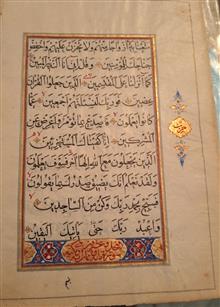 متعنا به أزواجا منهم ولا تحزن عليهم واخفض
جناحك للمؤمنين وقل إني أنا النذير المبين
كما أنزلنا على المقتسمين الذين جعلوا القرآن
عضين فوربك لنسئلنهم أجمعين عما
كانوا يعملون فاصدع بما تؤمر وأعرض عن
المشركين إنا كفيناك المستهزئين
الذين يجعلون مع الله إلها آخر فسوف يعلمون
ولقد نعلم أنك يضيق صدرك بما يقولون
فسبح بحمد ربك وكن من الساجدين
واعبد ربك حتى يأتيك اليقين